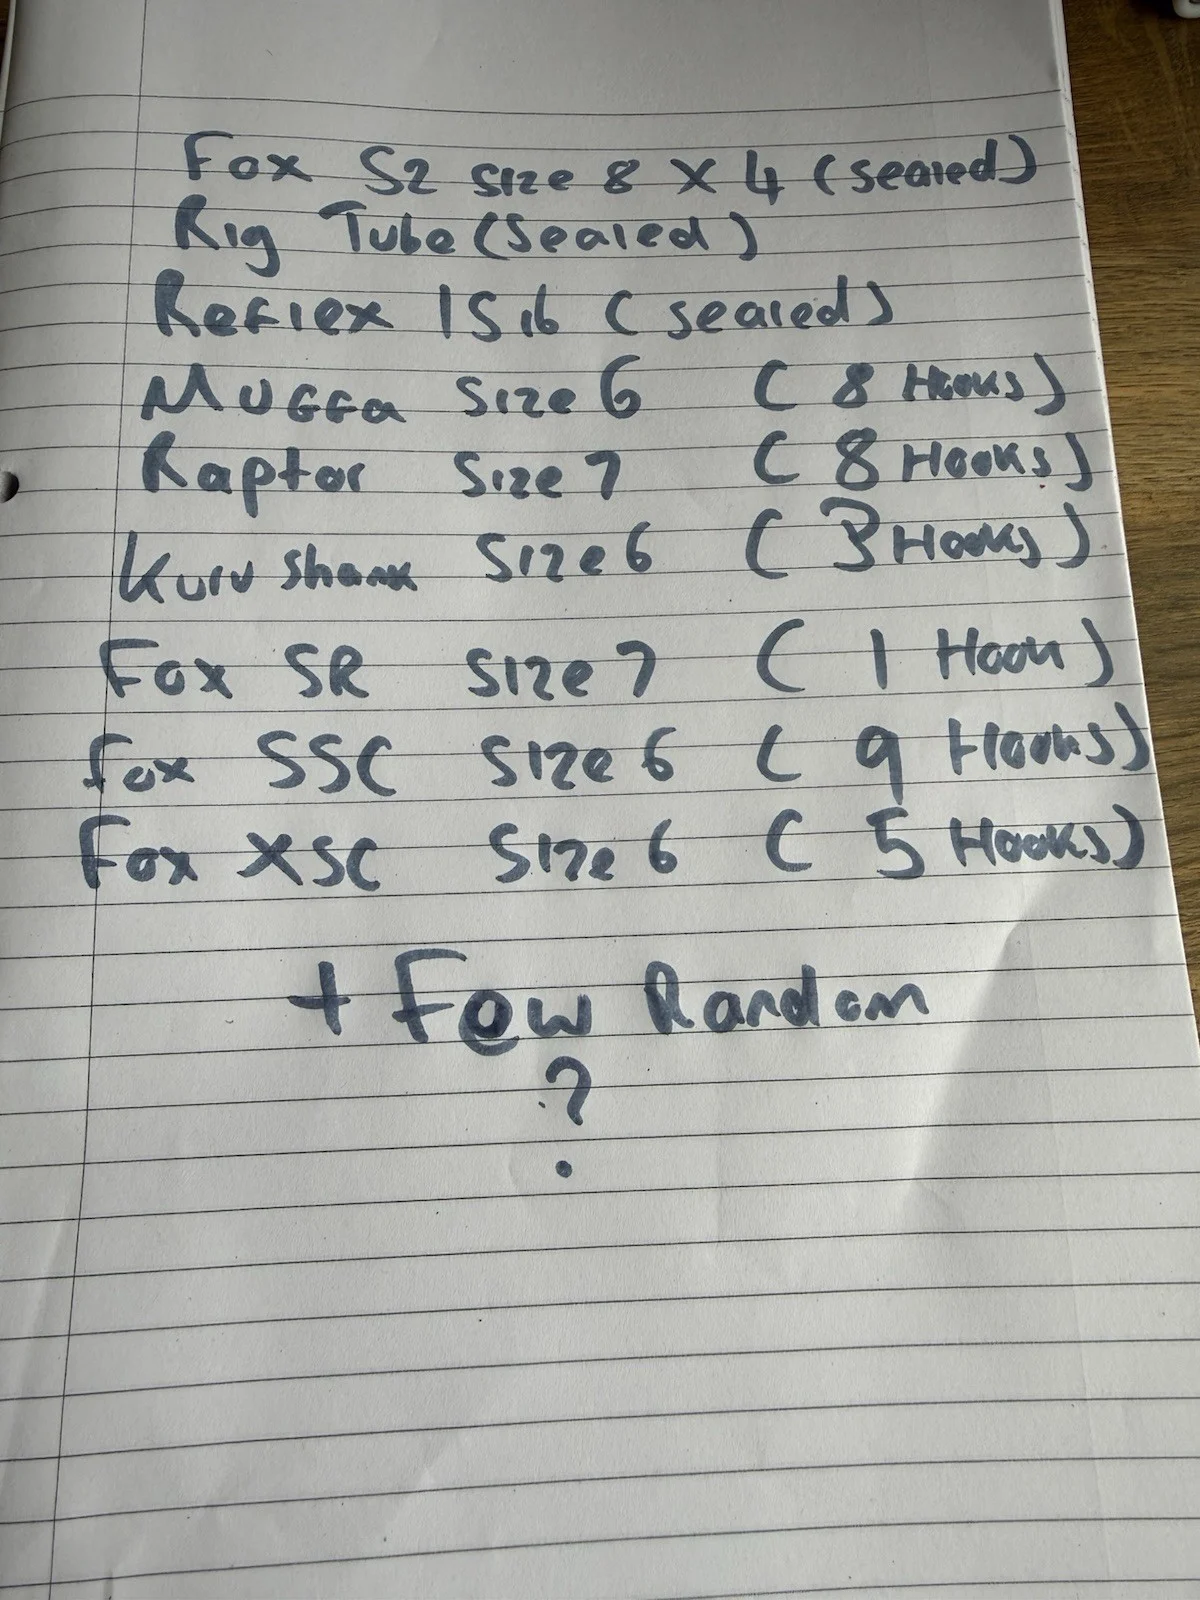 Fox S2 Size 8 x 4 (Sealed)
Rig Tube (Sealed)
Reflex 15lb (sealed)
Mugga Size 6 (8 Hooks)
Raptor Size 7 (8 Hooks)
Kurv Shank Size 6 (3 Hooks)
Fox SR Size 7 (1 Hook)
Fox SSC Size 6 (9 Hooks)
Fox XSC Size 6 (5 Hooks)
+ Few Random
?